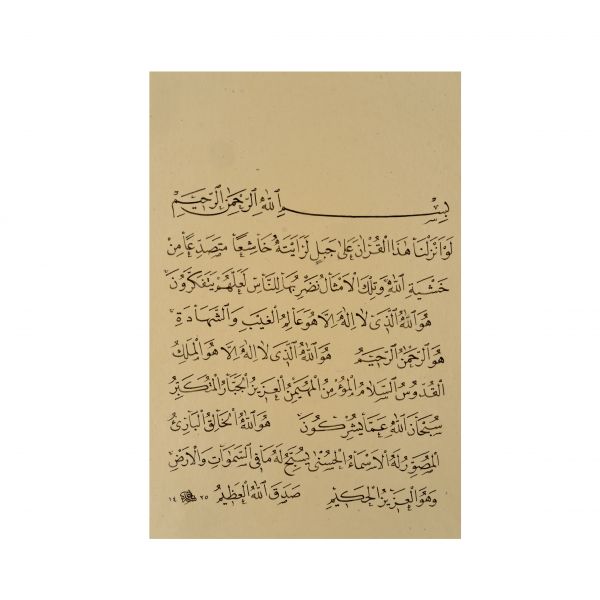 بِسْمِ اللهِ الرَّحْمٰنِ الرَّحِيْمِ
لَوْ اَنْزَلْنَا هٰذَا الْقُرْاٰنَ عَلٰى جَبَلٍ لَرَاَيْتَهُ خَاشِعًا مُتَصَدِّعًا مِنْ
خَشْيَةِ اللهِ وَتِلْكَ الْاَمْثَالُ نَضْرِبُهَا لِلنَّاسِ لَعَلَّهُمْ يَتَفَكَّرُوْنَ
هُوَ اللهُ الَّذِى لَا اِلٰهَ اِلَّا هُوَ عَالِمُ الْغَيْبِ وَالشَّهَادَةِ
هُوَ الرَّحْمٰنُ الرَّحِيْمُ هُوَ اللهُ الَّذِى لَا اِلٰهَ اِلَّا هُوَ الْمَلِكُ
الْقُدُّوْسُ السَّلَامُ الْمُؤْمِنُ الْمُهَيْمِنُ الْعَزِيْزُ الْجَبَّارُ الْمُتَكَبِّرُ
سُبْحَانَ اللهِ عَمَّا يُشْرِكُوْنَ هُوَ اللهُ الْخَالِقُ الْبَارِئُ
الْمُصَوِّرُ لَهُ الْاَسْمَاءُ الْحُسْنٰى يُسَبِّحُ لَهُ مَا فِى السَّمٰوَاتِ وَالْاَرْضِ
وَهُوَ الْعَزِيْزُ الْحَكِيْمُ صَدَقَ اللهُ الْعَظِيْمُ ١٤ ٢٥